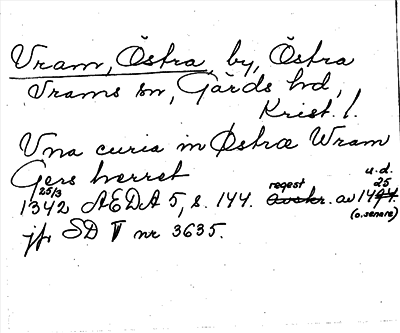 Vram, Östra, by, Östra
Vrams sn, Gärds hd,
Krist. l.
Una curia in Østræ Wram
Gers herret
25/3 regest u.d.
1342 AEDA 5, s. 144. avskr. av 1494. 25
(o. senare)
jfr SD V nr 3635.